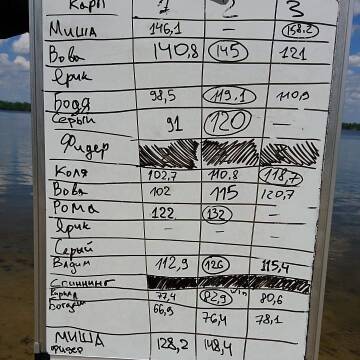 Карп 1 2 3
Миша 146,1 — 158.2
Вова 140,8 145 121
Ярик
Бодя 98,5 119.1 110,9
Серый 91 120 —
Фидер
Коля 102,7 110,8 118,7
Вова 102 115 120,7
Рома 122 132 —
Ярик — — —
Серый — — —
Вадим 112,9 126 115,4
Спиннинг
77,4 82,9 80,6
Богдан 66,9 76,4 78,1
МИША 128,2 148,4
фидер